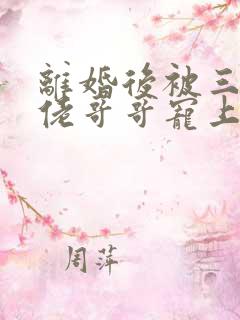 離婚後被三
佬哥哥寵上
周萍